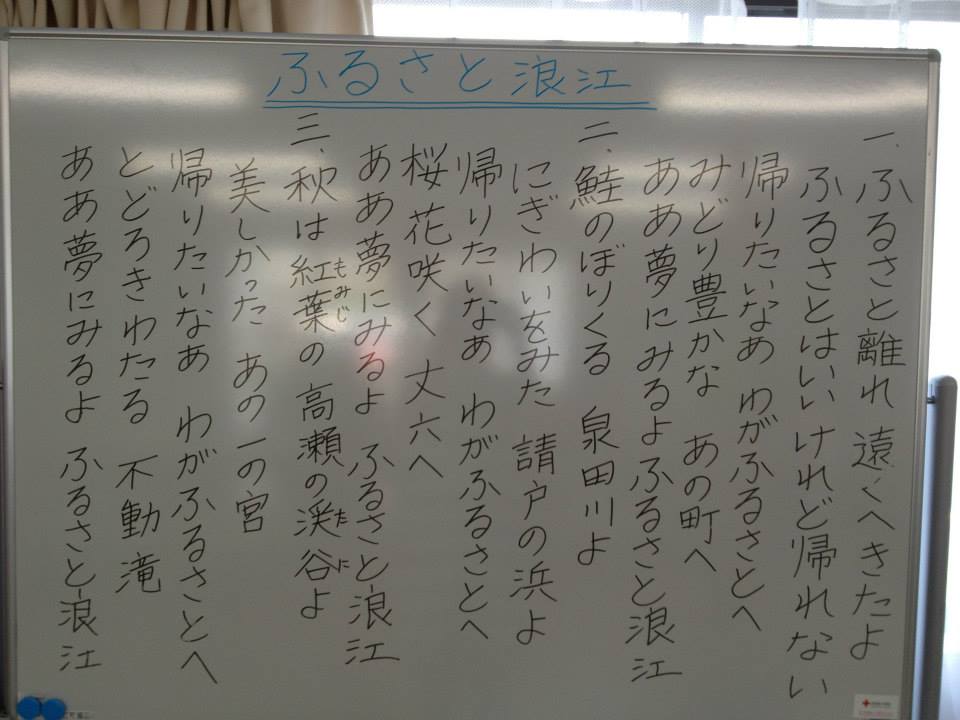 ふるさと浪江
一、ふるさと離れ 遠くへきたよ
ふるさとはいいけれど帰れない
帰りたいなあ わがふるさとへ
みどり豊かな あの町へ
ああ夢にみるよふるさと浪江
二、鮭のぼりくる 泉田川よ
にぎわいをみた 請戸の浜よ
帰りたいなあ わがふるさとへ
桜花咲く 丈六へ
ああ夢にみるよ ふるさと浪江
三、秋は紅葉の高瀬の渓谷よ
もみじ
たに
美しかった あの一の宮
帰りたいなあ わがふるさとへ
とどろきわたる 不動滝
ああ夢にみるよ ふるさと浪江